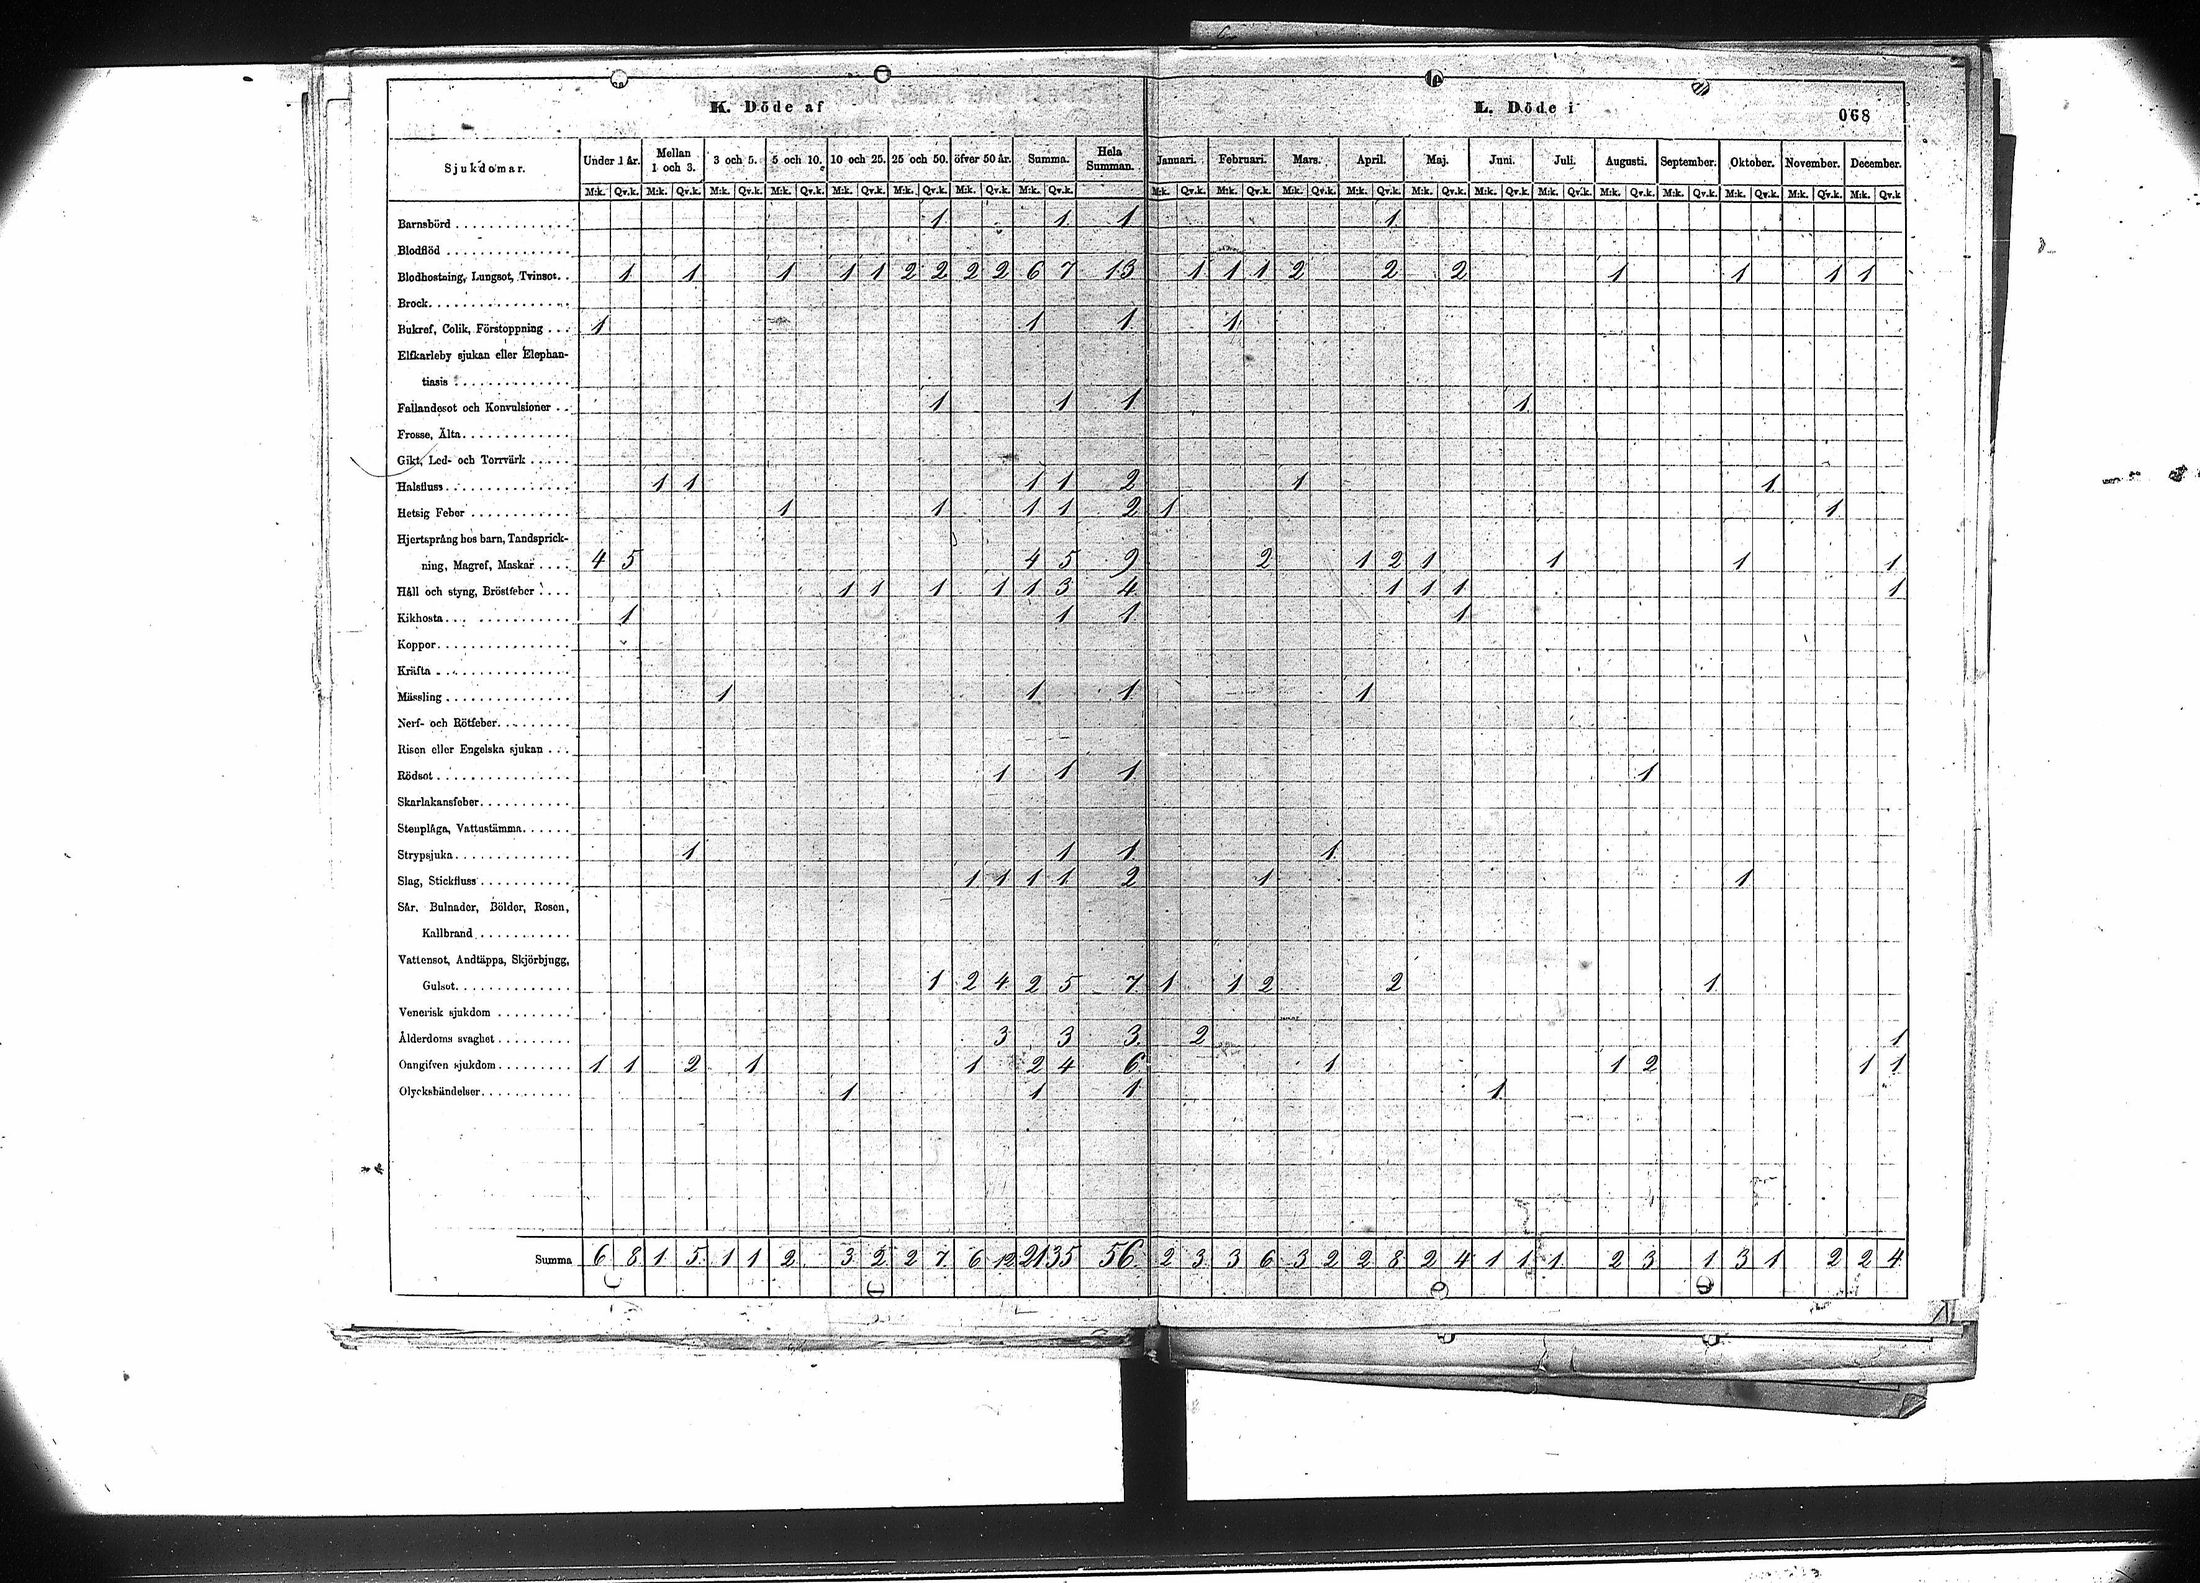 K. Döde af
L. Döde i
068
Sjukdomar. Under 1 år. Mellan 1 och 3. 3 och 5. 5 och 10. 10 och 25. 25 och 50. öfver 50 år. Summa. Hela Summan. Januari. Februari. Mars. April. Maj. Juni. Juli. Augusti. September. Oktober. November. December.
M:k. Qv.k. M:k. Qv.k. M:k. Qv.k. M:k. Qv.k. M:k. Qv.k. M:k. Qv.k. M:k. Qv.k. M:k. Qv.k. M:k. Qv.k. M:k. Qv.k. M:k. Qv.k. M:k. Qv.k. M:k. Qv.k. M:k. Qv.k. M:k. Qv.k. M:k. Qv.k. M:k. Qv.k. M:k. Qv.k. M:k. Qv.k. M:k. Qv.k
Barnsbörd 1 1 1 1
Blodflöd
Blodhostning, Lungsot, Tvinsot. 1 1 1 1 1 2 2 2 2 6 7 13 1 1 1 2 2 2 1 1 1 1
Brock
Bukref, Colik, Förstoppning 1 1 1 1
Elfkarleby sjukan eller Elephan-
tiasis
Fallandesot och Konvulsioner 1 1 1 1
Frosse, Älta
Gikt, Led- och Torrvärk
Halsfluss 1 1 1 1 2 1 1
Hetsig Feber 1 1 1 1 2 1 1
Hjertsprång hos barn, Tandsprick-
ning, Magref, Maskar 4 5 4 5 9 2 1 2 1 1 1 1
Håll och styng, Bröstfeber 1 1 1 1 1 3 4 1 1 1 1
Kikhosta 1 1 1 1
Koppor
Kräfta
Mässling 1 1 1 1
Nerf- och Rötfeber
Risen eller Engelska sjukan
Rödsot 1 1 1 1
Skarlakansfeber
Stenplåga, Vattustämma
Strypsjuka 1 1 1 1
Slag, Stickfluss 1 1 1 1 2 1 1
Sår, Bulnader, Bölder, Rosen,
Kallbrand
Vattensot, Andtäppa, Skjörbjugg,
Gulsot 1 2 4 2 5 7 1 1 2 2 1
Venerisk sjukdom
Ålderdoms svaghet 3 3 3 2 1
Oangifven sjukdom 1 1 2 1 1 2 4 6 1 1 2 1 1
Olyckshändelser 1 1 1 1
Summa 6 8 1 5 1 1 2 3 2 2 7 6 12 21 35 56 2 3 3 6 3 2 2 8 2 4 1 1 1 2 3 1 3 1 2 2 4